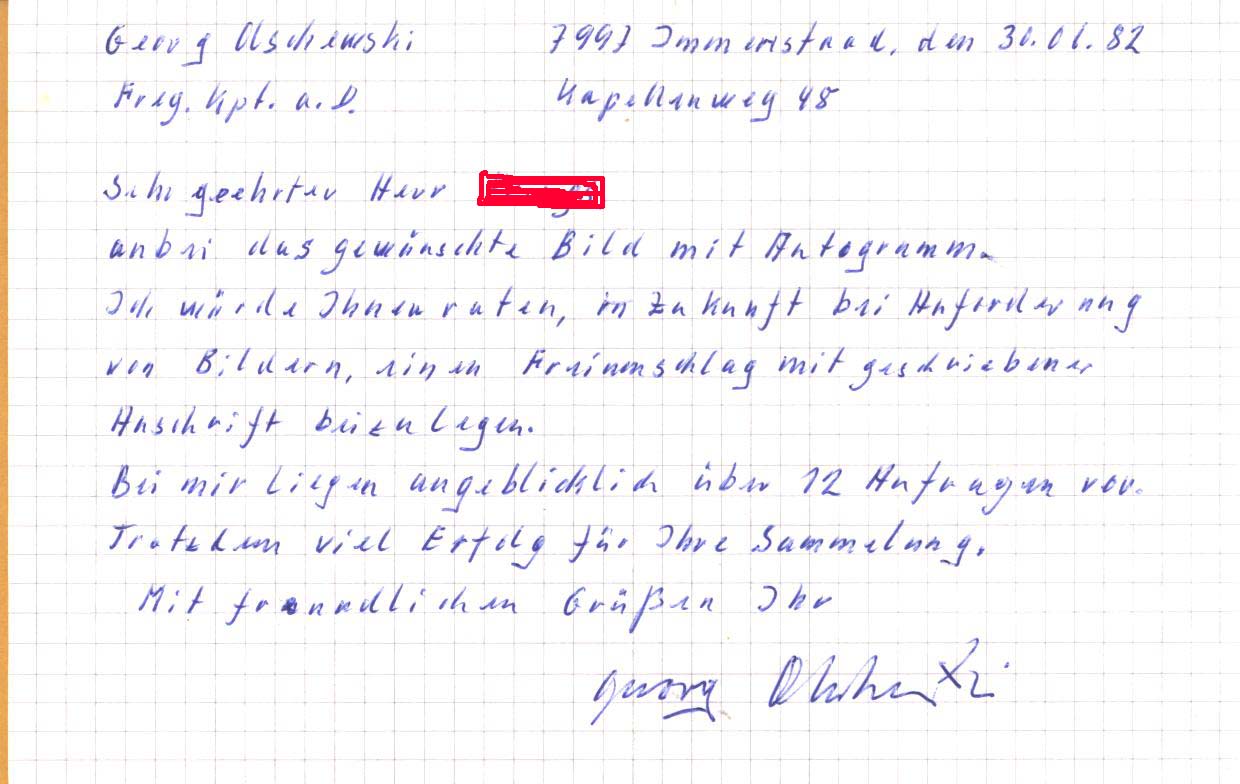 Georg Olschewski 7997 Immenstaad, den 30.01.82
Freg. Kpt. a. D. Kapellenweg 48
Sehr geehrter Herr
anbei das gewünschte Bild mit Autogramm.
Ich würde Ihnen raten, in Zukunft bei Anforderung
von Bildern, einen Freiumschlag mit geschriebener
Anschrift beizulegen.
Bei mir liegen angeblicklich über 12 Anfragen vor.
Trotzdem viel Erfolg für Ihre Sammelung.
Mit freundlichen Grüßen Ihr
Georg Olschewski